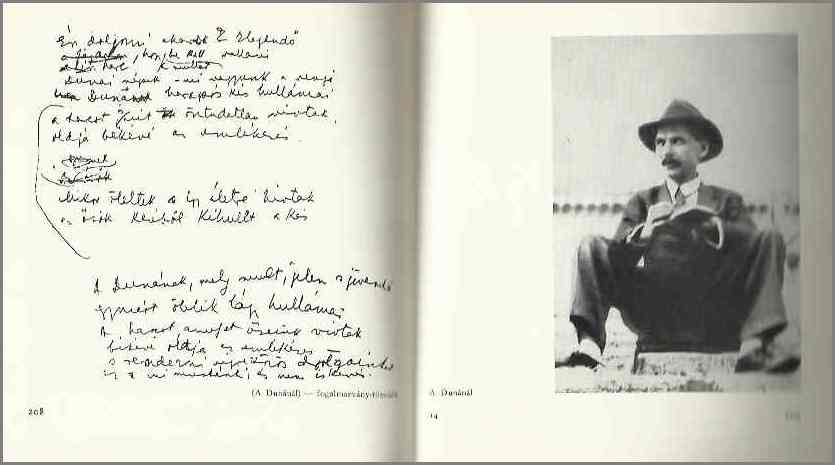 Én dolgozni akarok Elegendő
hogy be kell vallani
a multat
Dunai népek - mi vagyunk a
Dunának harapós kis hullámai
a harcot öntudatlan vivtak
oldja békévé az emlékezés
Mikor öleltek s igy életre hivtak
az ősök kezéből kihullt a kés
A Dunának, mely mult, jelen s jövendő
egymást ölelik lágy hullámai
A harcot, amelyet őseink vivtak
békévé oldja az emlékezés
s rendezni végre közös dolgainkat
ez a mi munkánk; és nem is kevés.
(A Dunánál) — fogalmazvány-töredék
208
A Dunánál
14